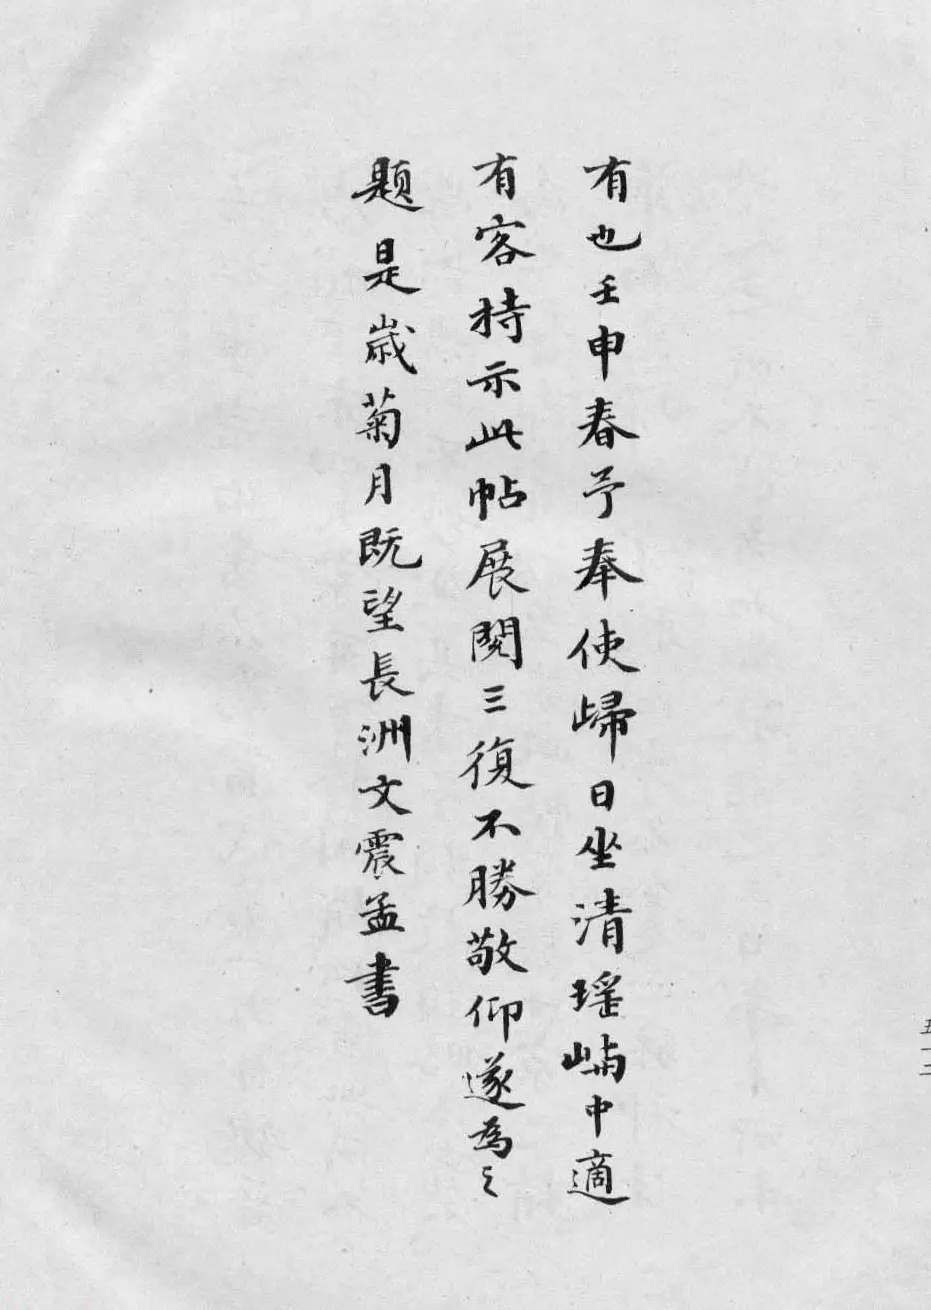 有也壬申春予奉使歸日坐清瑤嶼中適
有客持示此帖展閱三復不勝敬仰遂為之
題是歲菊月既望長洲文震孟書
五一二